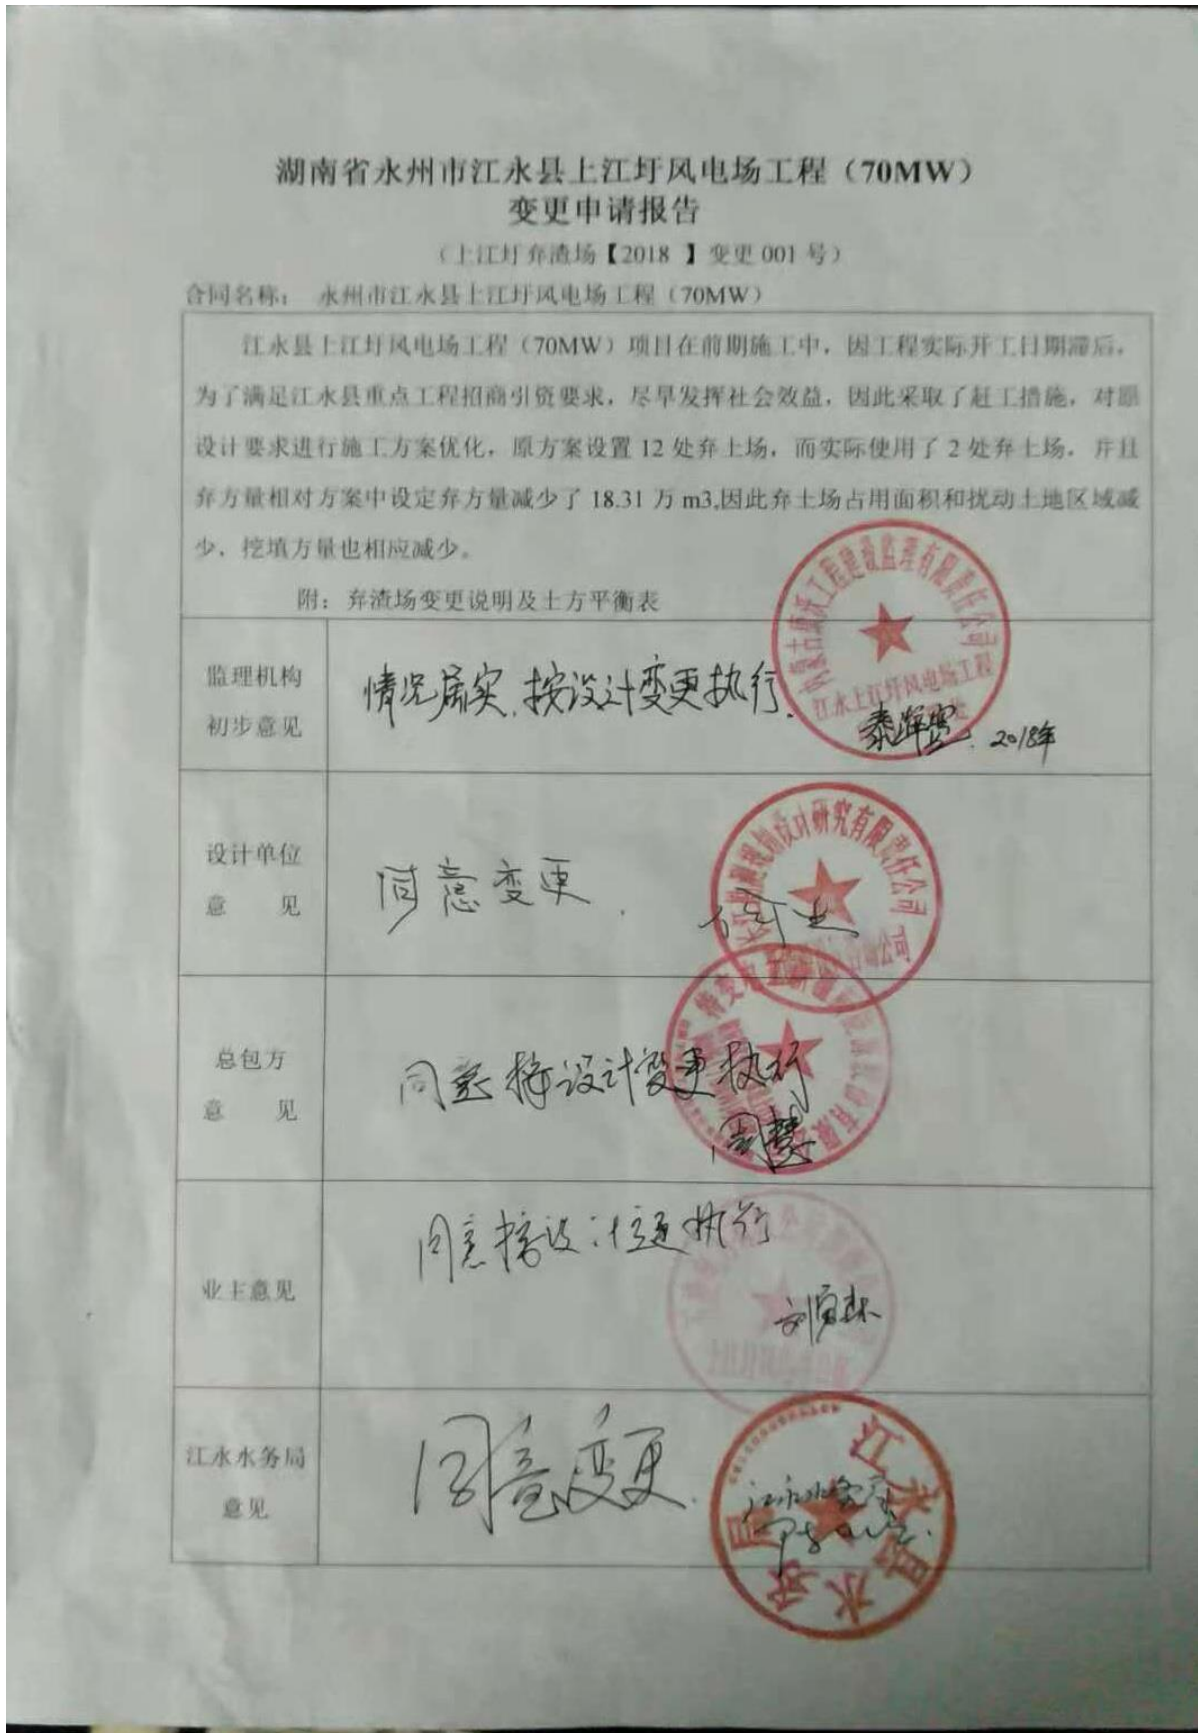 湖南省永州市江永县上江圩风电场工程（70MW）
变更申请报告
（上江圩弃渣场【2018 】变更 001 号）
合同名称： 永州市江永县上江圩风电场工程（70MW）
江永县上江圩风电场工程（70MW）项目在前期施工中，因工程实际开工日期滞后，
为了满足江永县重点工程招商引资要求，尽早发挥社会效益，因此采取了赶工措施，对原
设计要求进行施工方案优化，原方案设置 12 处弃土场，而实际使用了 2 处弃土场，并且
弃方量相对方案中设定弃方量减少了 18.31 万 m3,因此弃土场占用面积和扰动土地区域减
少，挖填方量也相应减少。
附：弃渣场变更说明及土方平衡表
监理机构
初步意见
情况属实，按设计变更执行．
工程建设监理有限责任公司
江永上江圩风电场工程
2018年
设计单位
意 见
同意变更．
规划设计研究有限责任公司
总包方
意 见
同意按设计变更执行
周慧
业主意见
同意按设计变更执行
江永水务局
意见
同意变更．
江永水务局
江永县水务局